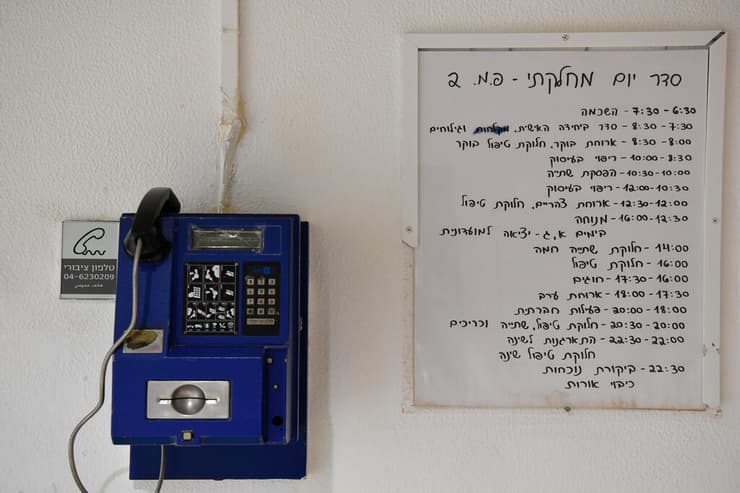 טלפון ציבורי
04-6230209
סדר יום מחלקתי - פ.מ. 2
6:30-7:30 - השכמה
7:30-8:30 - סדר ביחידה האישית, מקלחות וגילוחים
8:00-8:30 - ארוחת בוקר, חלוקת טיפול בוקר
8:30-10:00 - ריפוי בעיסוק
10:00-10:30 - הפסקת שתייה
10:30-12:00 - ריפוי בעיסוק
12:00-12:30 - ארוחת צהריים, חלוקת טיפול
12:30-16:00 - מנוחה
בימים א,ג - יציאה למועדונית
14:00 - חלוקת שתייה חמה
16:00 - חלוקת טיפול
16:00-17:30 - חוגים
17:30-18:00 - ארוחת ערב
18:00-20:00 - פעילות חברתית
20:00-20:30 - חלוקת טיפול, שתייה וכריכים
22:00-22:30 - התארגנות לשינה
חלוקת טיפול שינה
22:30 - ביקורת נוכחות
כיבוי אורות